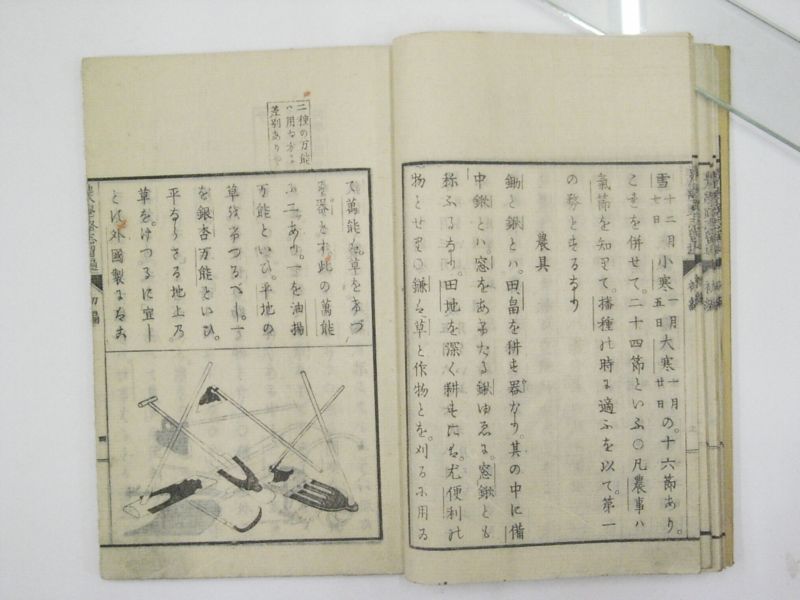 雪 十二月七日 小寒 一月五日 大寒 一月廿日 の。十六節あり。
こまを併せて。二十四節といふ〇凡農事ハ
氣節を知りて。播種の時に適ふを以て。第一
の務とするなり
農具
鋤と鍬とハ。田畠を耕す器なり。其の中に備
中鍬とハ窓をあけたる鍬ゆゑに。窓鍬とも
称ふるなり。田地を深く耕すには。尤便利の
物とせり〇鎌は草と作物とを。刈るに用ゐる
又萬能は。草を
器とす。此の萬能
に二あり。一を油揚
万能といひ。平地の
草をけつるべし。一
を銀杏万能といひ。
平ならさる地上乃
草を。けつるに宜し
とに外國製にな
二種の万能
ハ用な方に
差別あり
初編